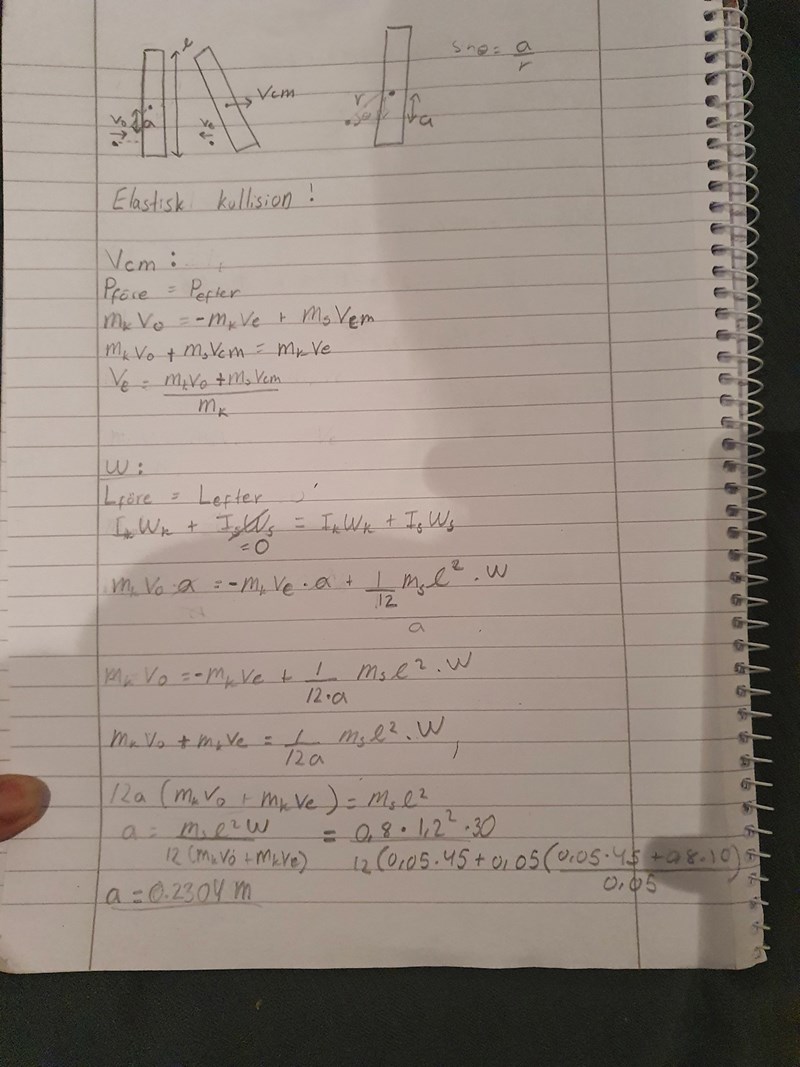 l
Vcm
v₀
a
Ve
r
a
Sinθ = a/r
Elastisk kullision!
Vcm:
Pföre = Pefter
mₖV₀ = -mₖVe + mₛVcm
mₖV₀ + mₛVcm = mₖVe
Ve = (mₖV₀ + mₛVcm)/mₖ
W:
Lföre = Lefter
IₖWₖ + IₛWₛ = IₖWₖ + IₛWₛ
=0
mₖV₀·a = -mₖVe·a + 1/12 mₛl²·W
a
mₖV₀ = -mₖVe + 1/(12·a) mₛl²·W
mₖV₀ + mₖVe = 1/(12a) mₛl²·W
12a(mₖV₀ + mₖVe) = mₛl²
a = mₛl²W/(12(mₖV₀ + mₖVe)) = 0,8·1,2²·30/(12(0,05·45 + 0,05((0,05·45 + 0,8·10)/0,05)
a = 0.2304 m